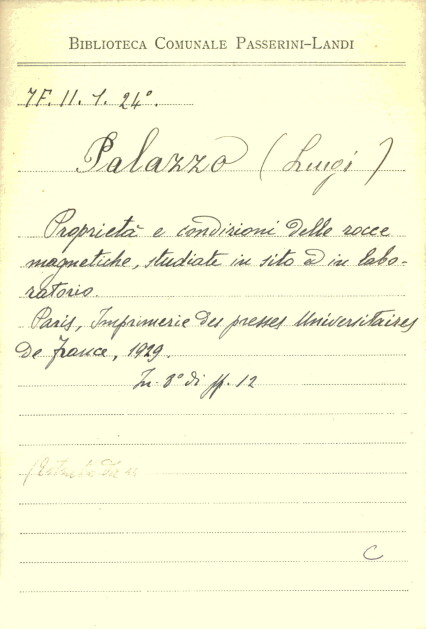 BIBLIOTECA COMUNALE PASSERINI-LANDI
7F. II. 1. 24°.
Palazzo (Luigi)
Proprietà e condizioni delle rocce
magnetiche, studiate in sito e in labo-
ratorio.
Paris, Imprimerie des presses Universitaires
de France, 1929.
In 8° di pp. 12
C